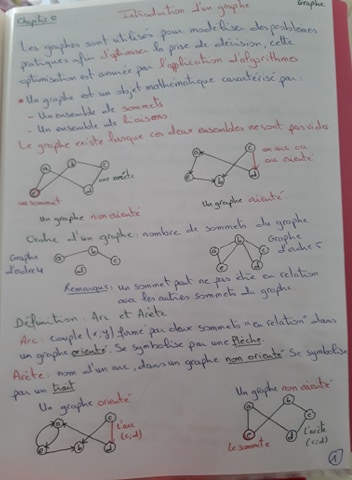 Chapitre 0
Introduction d'un graphe
Graphe
Les graphes sont utilisés pour modéliser des problèmes
pratiques afin d'optimiser la prise de décision, cette
optimisation est assurée par l'application d'algorithmes
* Un graphe est un objet mathématique caractérisé par :
- Un ensemble de sommets
- Un ensemble de liaisons
Le graphe existe lorsque ces deux ensembles ne sont pas vides
a b c d
une arête
un sommet
Un graphe non orienté
a b c d e
un arc ou
arc orienté
Un graphe orienté
Ordre d'un graphe : nombre de sommets du graphe
Graphe
d'ordre 4
a b c d
a b c d e
Graphe
d'ordre 5
Remarque : un sommet peut ne pas être en relation
avec les autres sommets du graphe
Définition : Arc et Arête
Arc : couple (x,y) formé par deux sommets "en relation" dans
un graphe orienté. Se symbolise par une flèche.
Arête : nom d'un arc, dans un graphe non orienté. Se symbolise
par un trait
Un graphe orienté
a b c d e
l'arc
(c,d)
Un graphe non orienté
a b c d e
Le sommet e
l'arête
(c,d)
1